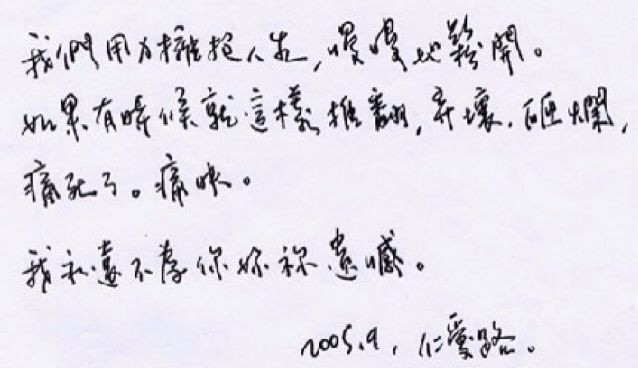 我們用力擁抱人生,慢慢地鬆開。
如果有時候就這樣推翻,弄壞.砸爛,
痛死了。痛快。
我和遠不孝你妳祢遺憾。
2005.9, 仁愛路。